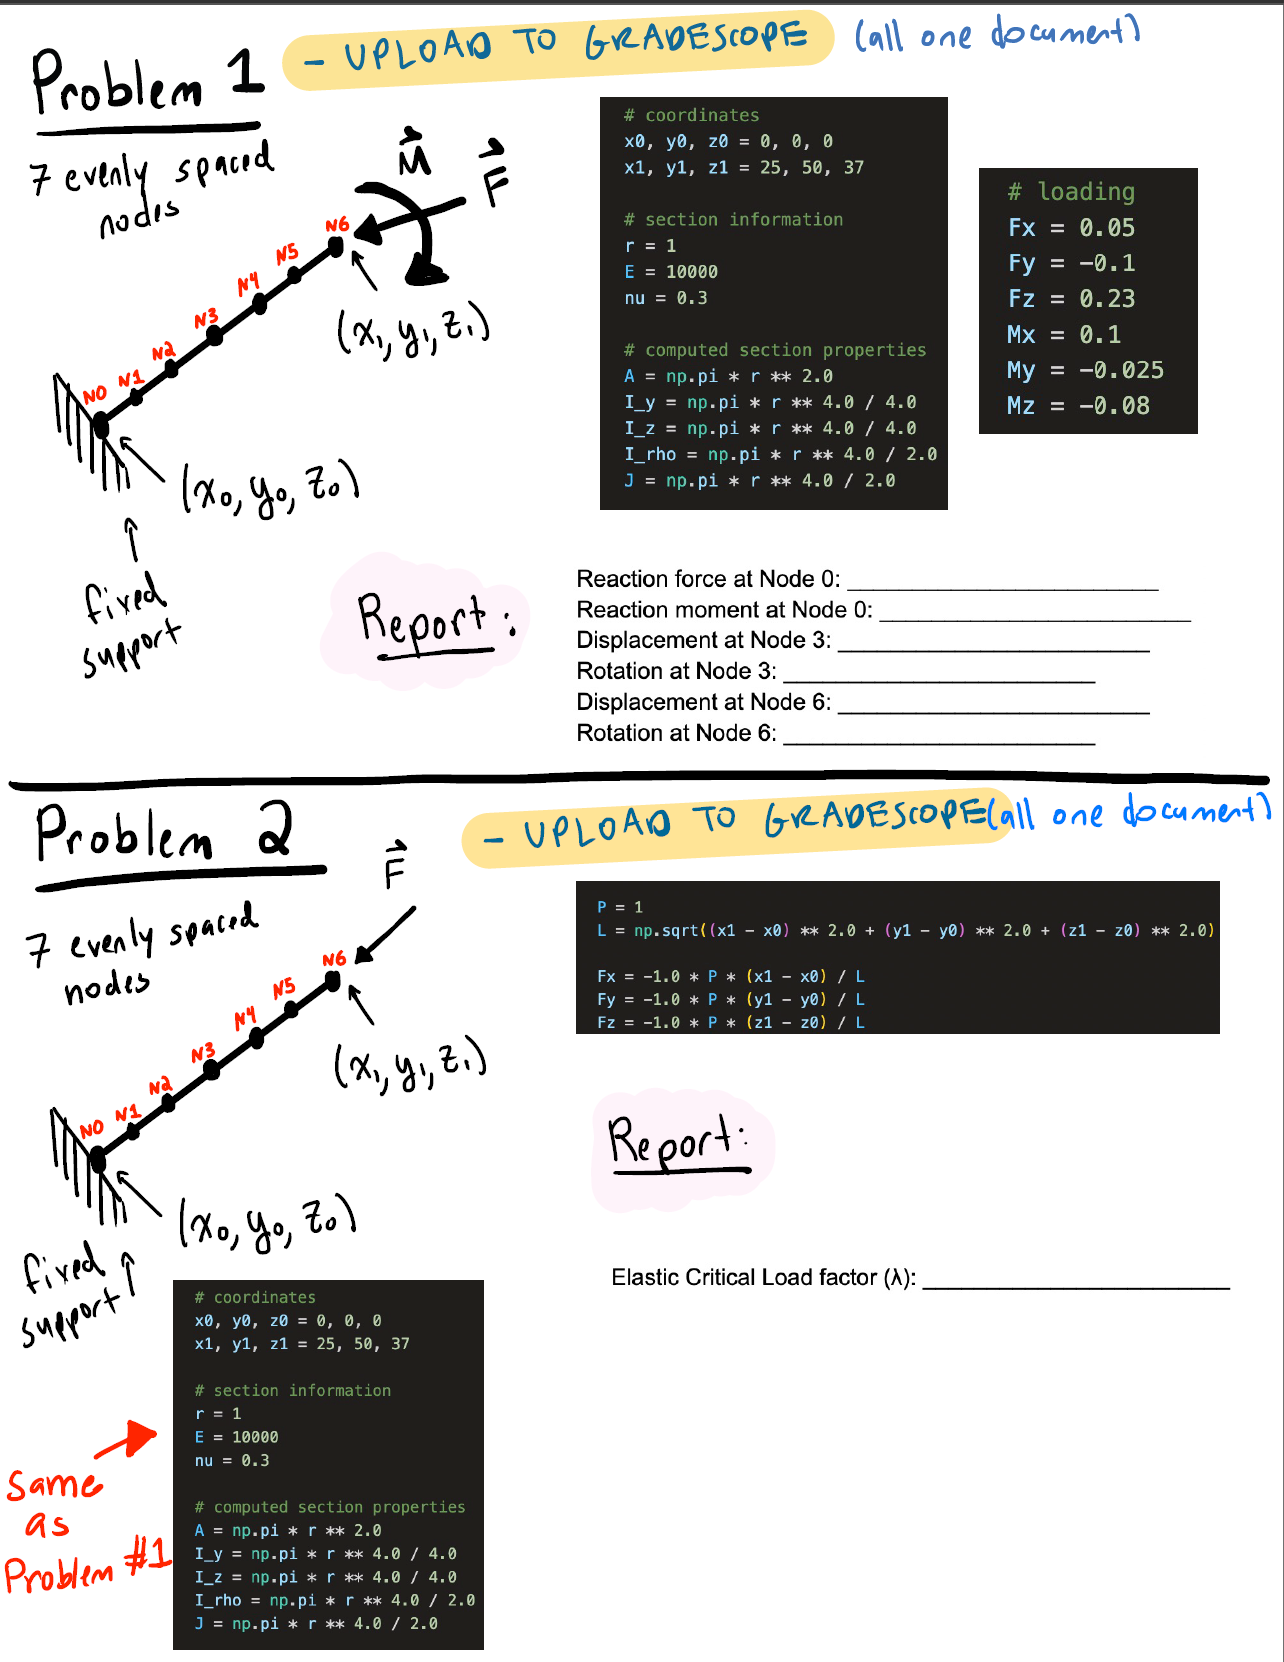 Problem 1
- UPLOAD TO GRADESCOPE (all one document)
7 evenly spaced
nodes
M
F
N6
N5
N4
N3
N2
N1
N0
(x1, y1, z1)
(x0, y0, z0)
fixed
support
# coordinates
x0, y0, z0 = 0, 0, 0
x1, y1, z1 = 25, 50, 37
# section information
r = 1
E = 10000
nu = 0.3
# computed section properties
A = np.pi * r ** 2.0
I_y = np.pi * r ** 4.0 / 4.0
I_z = np.pi * r ** 4.0 / 4.0
I_rho = np.pi * r ** 4.0 / 2.0
J = np.pi * r ** 4.0 / 2.0
# loading
Fx = 0.05
Fy = -0.1
Fz = 0.23
Mx = 0.1
My = -0.025
Mz = -0.08
Report:
Reaction force at Node 0:
Reaction moment at Node 0:
Displacement at Node 3:
Rotation at Node 3:
Displacement at Node 6:
Rotation at Node 6:
Problem 2
- UPLOAD TO GRADESCOPE (all one document)
7 evenly spaced
nodes
F
N6
N5
N4
N3
N2
N1
N0
(x1, y1, z1)
(x0, y0, z0)
fixed
support
P = 1
L = np.sqrt((x1 - x0) ** 2.0 + (y1 - y0) ** 2.0 + (z1 - z0) ** 2.0)
Fx = -1.0 * P * (x1 - x0) / L
Fy = -1.0 * P * (y1 - y0) / L
Fz = -1.0 * P * (z1 - z0) / L
Report:
Elastic Critical Load factor (λ):
same
as
Problem #1
# coordinates
x0, y0, z0 = 0, 0, 0
x1, y1, z1 = 25, 50, 37
# section information
r = 1
E = 10000
nu = 0.3
# computed section properties
A = np.pi * r ** 2.0
I_y = np.pi * r ** 4.0 / 4.0
I_z = np.pi * r ** 4.0 / 4.0
I_rho = np.pi * r ** 4.0 / 2.0
J = np.pi * r ** 4.0 / 2.0